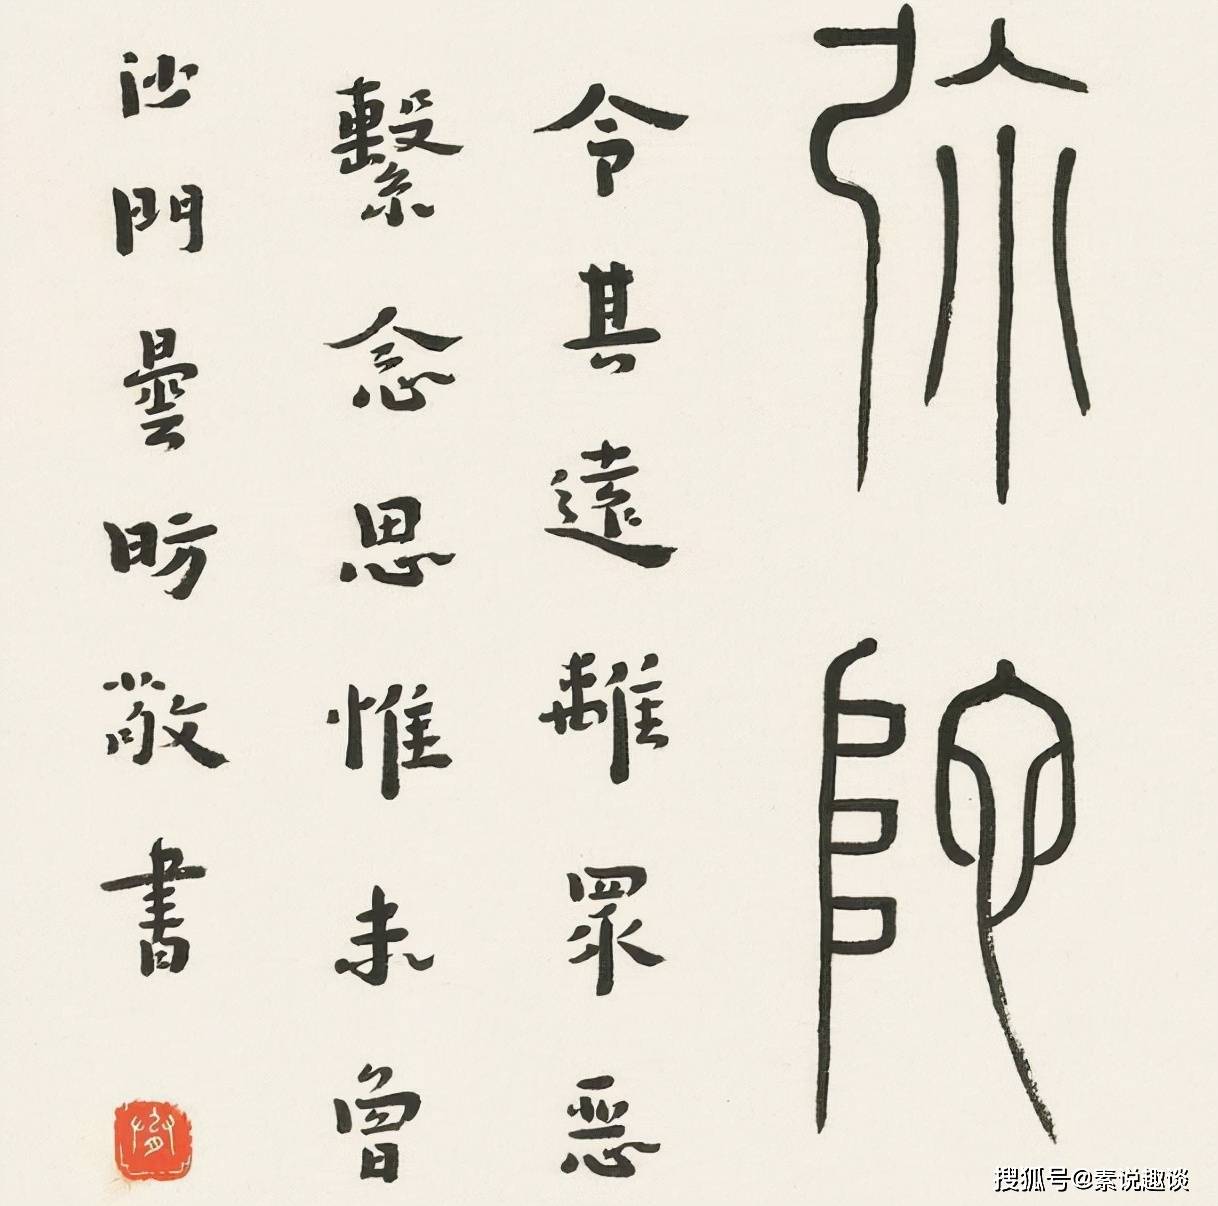 弥陀
令其遠離眾惡
繫念思惟未曾
沙門曇昉敬書
搜狐号@素说趣谈